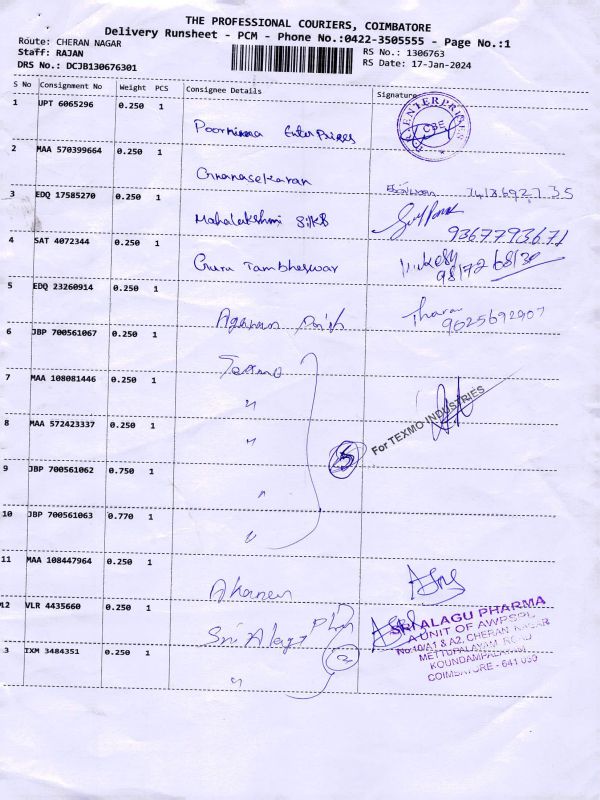 THE PROFESSIONAL COURIERS, COIMBATORE
Delivery Runsheet - PCM - Phone No.:0422-3505555 - Page No.:1
Route: CHERAN NAGAR
Staff: RAJAN
DRS No.: DCJB130676301
RS No.: 1306763
RS Date: 17-Jan-2024
S No Consignment No Weight PCS Consignee Details Signature
1 UPT 6065296 0.250 1 Poornima Enterprises
ENTERPRISES CBE
2 MAA 570399664 0.250 1 Gnanasekaran
3 EDQ 17585270 0.250 1 Mahalakshmi Silks
9367793671
4 SAT 4072344 0.250 1 Guru Jambheswar
5 EDQ 23260914 0.250 1
Tharan
9625692907
6 JBP 700561067 0.250 1 Texmo
7 MAA 108081446 0.250 1 "
8 MAA 572423337 0.250 1 "
5 For TEXMO INDUSTRIES
9 JBP 700561062 0.750 1 "
10 JBP 700561063 0.770 1 "
11 MAA 108447964 0.250 1
12 VLR 4435660 0.250 1 Sri Alagu
3 IXM 3484351 0.250 1 "
SRI ALAGU PHARMA
A UNIT OF AWPSPL
No:10/A1 & A2, CHERAN NAGAR
METTUPALAYAM ROAD
KOUNDAMPALAYAM
COIMBATORE - 641 030